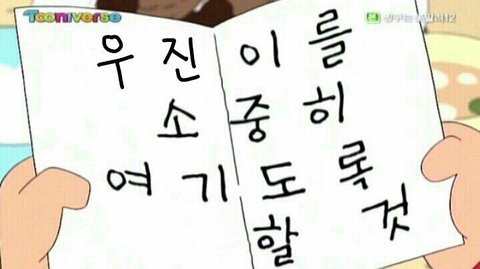 Tooniverse
짱구는 못말려12
우진이를
소중히
여기도록
할것